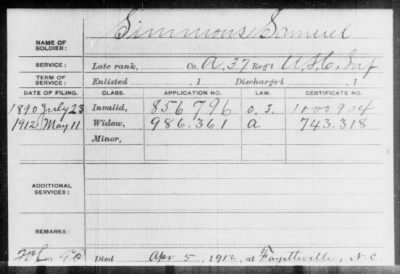 Simmons Samuel
NAME OF SOLDIER:
SERVICE: Late rank, Co. A. 37 Regt U.S.C. Inf
TERM OF SERVICE: Enlisted , 1 Discharged , 1
DATE OF FILING. CLASS. APPLICATION NO. LAW. CERTIFICATE NO.
1890 July 23 Invalid, 856 796 O. J. 1000904
1912 May 11 Widow, 986.361 a 743.318
Minor,
ADDITIONAL SERVICES:
REMARKS:
Died Apr 5, 1912, at Fayetteville, N.C.